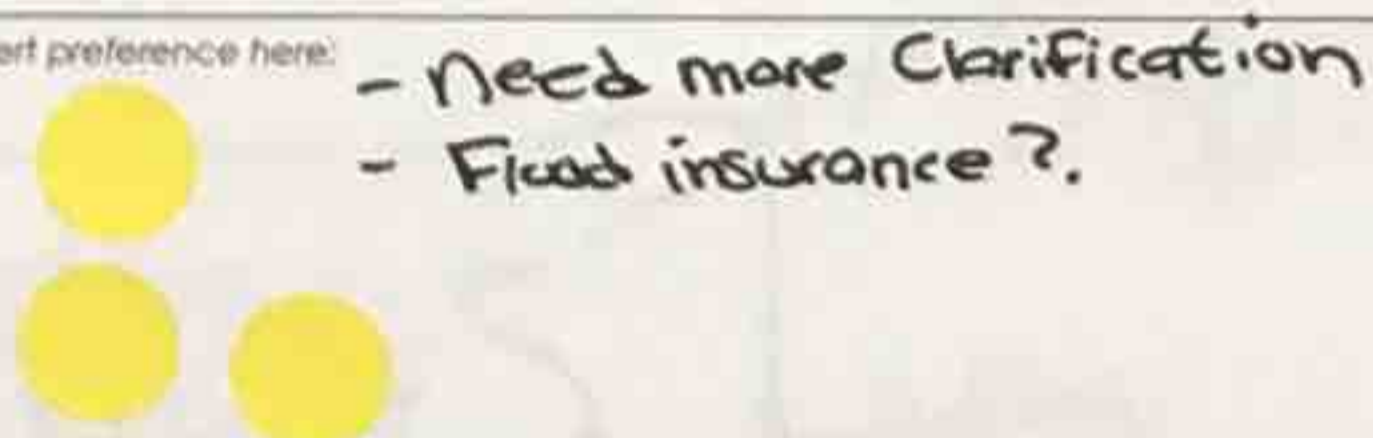 ert preference here:
- Need more Clarification
- Flood insurance?.